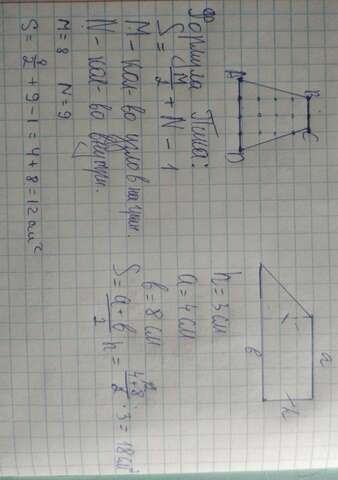 Формула Пика:
S = M/2 + N - 1
M - кол-во узлов на гран.
N - кол-во внутри.
M = 8 N = 9
S = 8/2 + 9 - 1 = 4 + 8 = 12 см²
A
B
C
D
a
h
b
h = 3 см
a = 4 см
b = 8 см
S = a + b/2 h = 4 + 8/2 · 3 = 18 см²